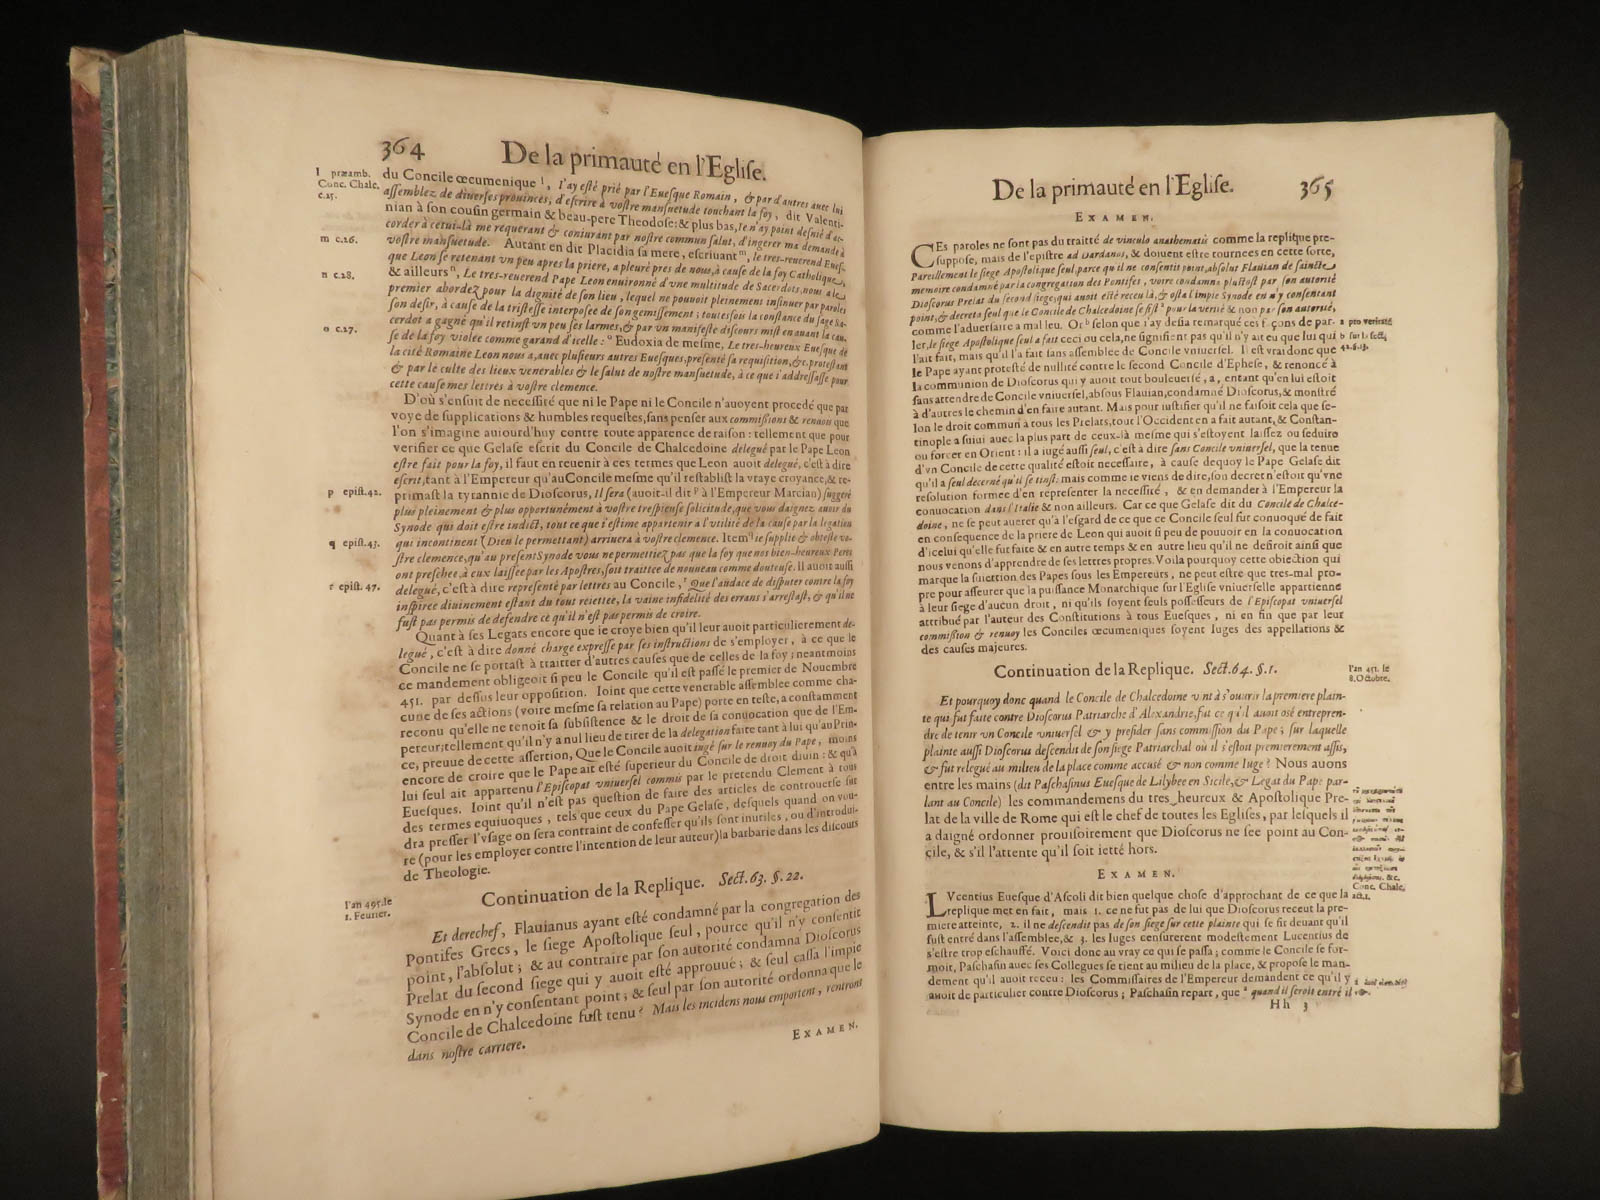 364 De la primauté en l'Egliſe.
l præamb.
Conc. Chalc.
c.25.
du Concile œcumenique l, i'ay eſté prié par l'Eueſque Romain, & par d'autres auec lui
aſſemblez de diuerſes prouinces, d'eſcrire à voſtre manſuetude touchant la foy, dit Valenti-
nian à ſon couſin germain & beau-pere Theodoſe: & plus bas, Ie n'ay point deſnié d'ac-
corder à cetui-là me requerant & coniurant par noſtre commun ſalut, d'ingerer ma demande à
m c.26.
voſtre manſuetude. Autant en dit Placidia ſa mere, eſcriuant m, le tres-reuerend Eueſ-
que Leon ſe retenant vn peu apres la priere, a pleuré pres de nous, à cauſe de la foy Catholique,
n c.28.
& ailleurs n, Le tres-reuerend Pape Leon enuironné d'vne multitude de Sacerdots, nous a le
premier abordez pour la dignité de ſon lieu, lequel ne pouuoit pleinement inſinuer par paroles
ſon deſir, à cauſe de la triſteſſe interpoſee de ſon gemiſſement; toutesfois la conſtance du ſage Sa-
cerdot a gagné qu'il retinſt vn peu ſes larmes, & par vn manifeſte diſcours miſt en auant la cau-
o c.27.
ſe de la foy violee comme garand d'icelle: o Eudoxia de meſme, Le tres-heureux Eueſque de
la cité Romaine Leon nous a, auec pluſieurs autres Eueſques, preſenté ſa requiſition, &c. proteſtant
& par le culte des lieux venerables & le ſalut de noſtre manſuetude, à ce que i'addreſſaſſe pour
cette cauſe mes lettres à voſtre clemence.
D'où s'enſuit de neceſſité que ni le Pape ni le Concile n'auoyent procedé que par
voye de ſupplications & humbles requeſtes, ſans penſer aux commiſſions & renuois que
l'on s'imagine auiourd'huy contre toute apparence de raiſon: tellement que pour
verifier ce que Gelaſe eſcrit du Concile de Chalcedoine delegué par le Pape Leon
eſtre fait pour la foy, il faut en reuenir à ces termes que Leon auoit delegué, c'eſt à dire
eſcrit, tant à l'Empereur qu'au Concile meſme qu'il reſtabliſt la vraye croyance, & re-
p epiſt. 42.
primaſt la tyrannie de Dioſcorus, Il ſera (auoit-il dit p à l'Empereur Marcian) ſuggeré
plus pleinement & plus opportunément à voſtre treſpienſe ſolicitude, que vous daignez auoir du
Synode qui doit eſtre indict, tout ce que i'eſtime appartenir à l'vtilité de la cauſe par la legation
q epiſt. 43.
qui incontinent (Dieu le permettant) arriuera à voſtre clemence. Item q ie ſupplie & obteſte vo-
ſtre clemence, qu'au preſent Synode vous ne permettiez pas que la foy que nos bien-heureux Peres
ont preſchee, à eux laiſſee par les Apoſtres, ſoit traittee de nouueau comme douteuſe. Il auoit auſſi
r epiſt. 47.
delegué, c'eſt à dire repreſenté par lettres au Concile, r Que l'audace de diſputer contre la foy
inſpiree diuinement eſtant du tout reiettee, la vaine infidelité des errans s'arreſtaſt, & qu'il ne
fuſt pas permis de defendre ce qu'il n'eſt pas permis de croire.
Quant à ſes Legats encore que ie croye bien qu'il leur auoit particulierement de-
legué, c'eſt à dire donné charge expreſſe par ſes inſtructions de s'employer, à ce que le
Concile ne ſe portaſt à traitter d'autres cauſes que de celles de la foy; neantmoins
ce mandement obligeoit ſi peu le Concile qu'il eſt paſſé le premier de Nouembre
451. par deſſus leur oppoſition. Ioint que cette venerable aſſemblee comme cha-
cune de ſes actions (voire meſme ſa relation au Pape) porte en teſte, a conſtamment
reconu qu'elle ne tenoit ſa ſubſiſtence & le droit de ſa conuocation que de l'Em-
pereur: tellement qu'il n'y a nul lieu de tirer de la delegation faite tant à lui qu'au Prin-
ce, preuue de cette aſſertion, Que le Concile auoit iugé ſur le renuoy du Pape, moins
encore de croire que le Pape ait eſté ſuperieur du Concile de droit diuin: & qu'à
lui ſeul ait appartenu l'Epiſcopat vniuerſel commis par le pretendu Clement à tous
Eueſques. Ioint qu'il n'eſt pas queſtion de faire des articles de controuerſe ſur
des termes equiuoques, tels que ceux du Pape Gelaſe, deſquels quand on vou-
dra preſſer l'vſage on ſera contraint de confeſſer qu'ils ſont inutiles, ou d'introdui-
re (pour les employer contre l'intention de leur auteur) la barbarie dans les diſcours
de Theologie.
Continuation de la Replique. Sect. 63. §. 22.
l'an 495. le
1. Feurier.
Et derechef, Flauianus ayant eſté condamné par la congregation des
Pontifes Grecs, le ſiege Apoſtolique ſeul, pource qu'il n'y conſentit
point, l'abſolut; & au contraire par ſon autorité condamna Dioſcorus
Prelat du ſecond ſiege qui y auoit eſté approuué; & ſeul caſſa l'impie
Synode en n'y conſentant point; & ſeul par ſon autorité ordonna que le
Concile de Chalcedoine fuſt tenu? Mais les incidens nous emportent, rentrons
dans noſtre carriere.
EXAMEN.
De la primauté en l'Egliſe. 365
EXAMEN.
CEs paroles ne ſont pas du traitté de vinculo anathematis comme la replique pre-
ſuppoſe, mais de l'epiſtre ad Dardanos, & doiuent eſtre tournees en cette ſorte,
Pareillement le ſiege Apoſtolique ſeul, parce qu'il ne conſentit point, abſolut Flauian de ſaincte
memoire condamné par la congregation des Pontifes, voire condamna pluſtoſt par ſon autorité
Dioſcorus Prelat du ſecond ſiege, qui auoit eſté receu là, & oſta l'impie Synode en n'y conſentant
point, & decreta ſeul que le Concile de Chalcedoine ſe fiſt a pour la verité & non par ſon autorité,
a pro veritate
comme l'aduerſaire a mal leu. Or b ſelon que i'ay deſia remarqué ces façons de par-
b ſur la ſect.
ler, le ſiege Apoſtolique ſeul a fait ceci ou cela, ne ſignifient pas qu'il n'y ait eu que lui qui
l'ait fait, mais qu'il l'a fait ſans aſſemblee de Concile vniuerſel. Il eſt vrai donc que
le Pape ayant proteſté de nullité contre le ſecond Concile d'Epheſe, & renoncé à
la communion de Dioſcorus qui y auoit tout bouleuerſé, a, entant qu'en lui eſtoit
ſans attendre de Concile vniuerſel, abſous Flauian, condamné Dioſcorus, & monſtré
à d'autres le chemin d'en faire autant. Mais pour iuſtifier qu'il ne faiſoit cela que ſe-
lon le droit commun à tous Prelats, tout l'Occident en a fait autant, & Conſtan-
tinople a ſuiui auec la plus part de ceux-là meſme qui s'eſtoyent laiſſez ou ſeduire
ou forcer en Orient: il a iugé auſſi ſeul, c'eſt à dire ſans Concile vniuerſel, que la tenue
d'vn Concile de cette qualité eſtoit neceſſaire, à cauſe dequoy le Pape Gelaſe dit
qu'il a ſeul decerné qu'il ſe tinſt: mais comme ie viens de dire, ſon decret n'eſtoit qu'vne
reſolution formee d'en repreſenter la neceſſité, & en demander à l'Empereur la
conuocation dans l'Italie & non ailleurs. Car ce que Gelaſe dit du Concile de Chalce-
doine, ne ſe peut auerer qu'à l'eſgard de ce que ce Concile ſeul fut conuoqué de fait
en conſequence de la priere de Leon qui auoit ſi peu de pouuoir en la conuocation
d'icelui qu'elle fut faite & en autre temps & en autre lieu qu'il ne deſiroit ainſi que
nous venons d'apprendre de ſes lettres propres. Voila pourquoy cette obiection qui
marque la ſuiettion des Papes ſous les Empereurs, ne peut eſtre que tres-mal pro-
pre pour aſſeurer que la puiſſance Monarchique ſur l'Egliſe vniuerſelle appartienne
à leur ſiege d'aucun droit, ni qu'ils ſoyent ſeuls poſſeſſeurs de l'Epiſcopat vniuerſel
attribué par l'auteur des Conſtitutions à tous Eueſques, ni en fin que par leur
commiſſion & renuoy les Conciles œcumeniques ſoyent Iuges des appellations &
des cauſes majeures.
Continuation de la Replique. Sect. 64. §. 1.
l'an 451. le
8. Octobre.
Et pourquoy donc quand le Concile de Chalcedoine vint à s'ouurir la premiere plain-
te qui fut faite contre Dioſcorus Patriarche d'Alexandrie, fut ce qu'il auoit oſé entrepren-
dre de tenir vn Concile vniuerſel & y preſider ſans commiſſion du Pape; ſur laquelle
plainte auſſi Dioſcorus deſcendit de ſon ſiege Patriarchal où il s'eſtoit premierement aſſis,
& fut relegué au milieu de la place comme accuſé & non comme Iuge? Nous auons
entre les mains (dit Paſchaſinus Eueſque de Lilybee en Sicile, & Legat du Pape par-
lant au Concile) les commandemens du tres heureux & Apoſtolique Pre-
lat de la ville de Rome qui eſt le chef de toutes les Egliſes, par leſquels il
a daigné ordonner prouiſoirement que Dioſcorus ne ſee point au Con-
cile, & s'il l'attente qu'il ſoit ietté hors.
&c.
Conc. Chalc.
EXAMEN.
LVcentius Eueſque d'Aſcoli dit bien quelque choſe d'approchant de ce que la
replique met en fait, mais 1. ce ne fut pas de lui que Dioſcorus receut la pre-
miere atteinte, 2. il ne deſcendit pas de ſon ſiege ſur cette plainte qui ſe fit deuant qu'il
fuſt entré dans l'aſſemblee, & 3. les Iuges cenſurerent modeſtement Lucentius de
s'eſtre trop eſchauffé. Voici donc au vray ce qui ſe paſſa; comme le Concile ſe for-
moit, Paſchaſin auec ſes Collegues ſe tient au milieu de la place, & propoſe le man-
dement qu'il auoit receu: les Commiſſaires de l'Empereur demandent ce qu'il y
auoit de particulier contre Dioſcorus; Paſchaſin repart, que a quand il ſeroit entré il
Hh 3